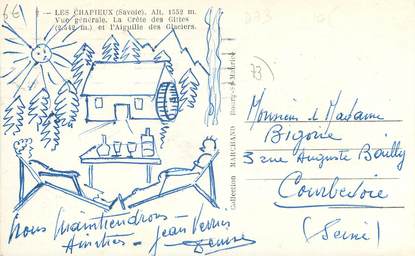 6€
73
LES CHAPIEUX (Savoie), Alt. 1552 m.
Vue générale. La Crête des Gittes
(2.542 m.) et l'Aiguille des Glaciers.
Collection MARCHAND Bourg-St-Maurice
Monsieur & Madame
Bigorie
3 rue Auguste Bailly
Courbevoie
(Seine)
Nous Maintiendrons
Amitiés - Jean
Denise